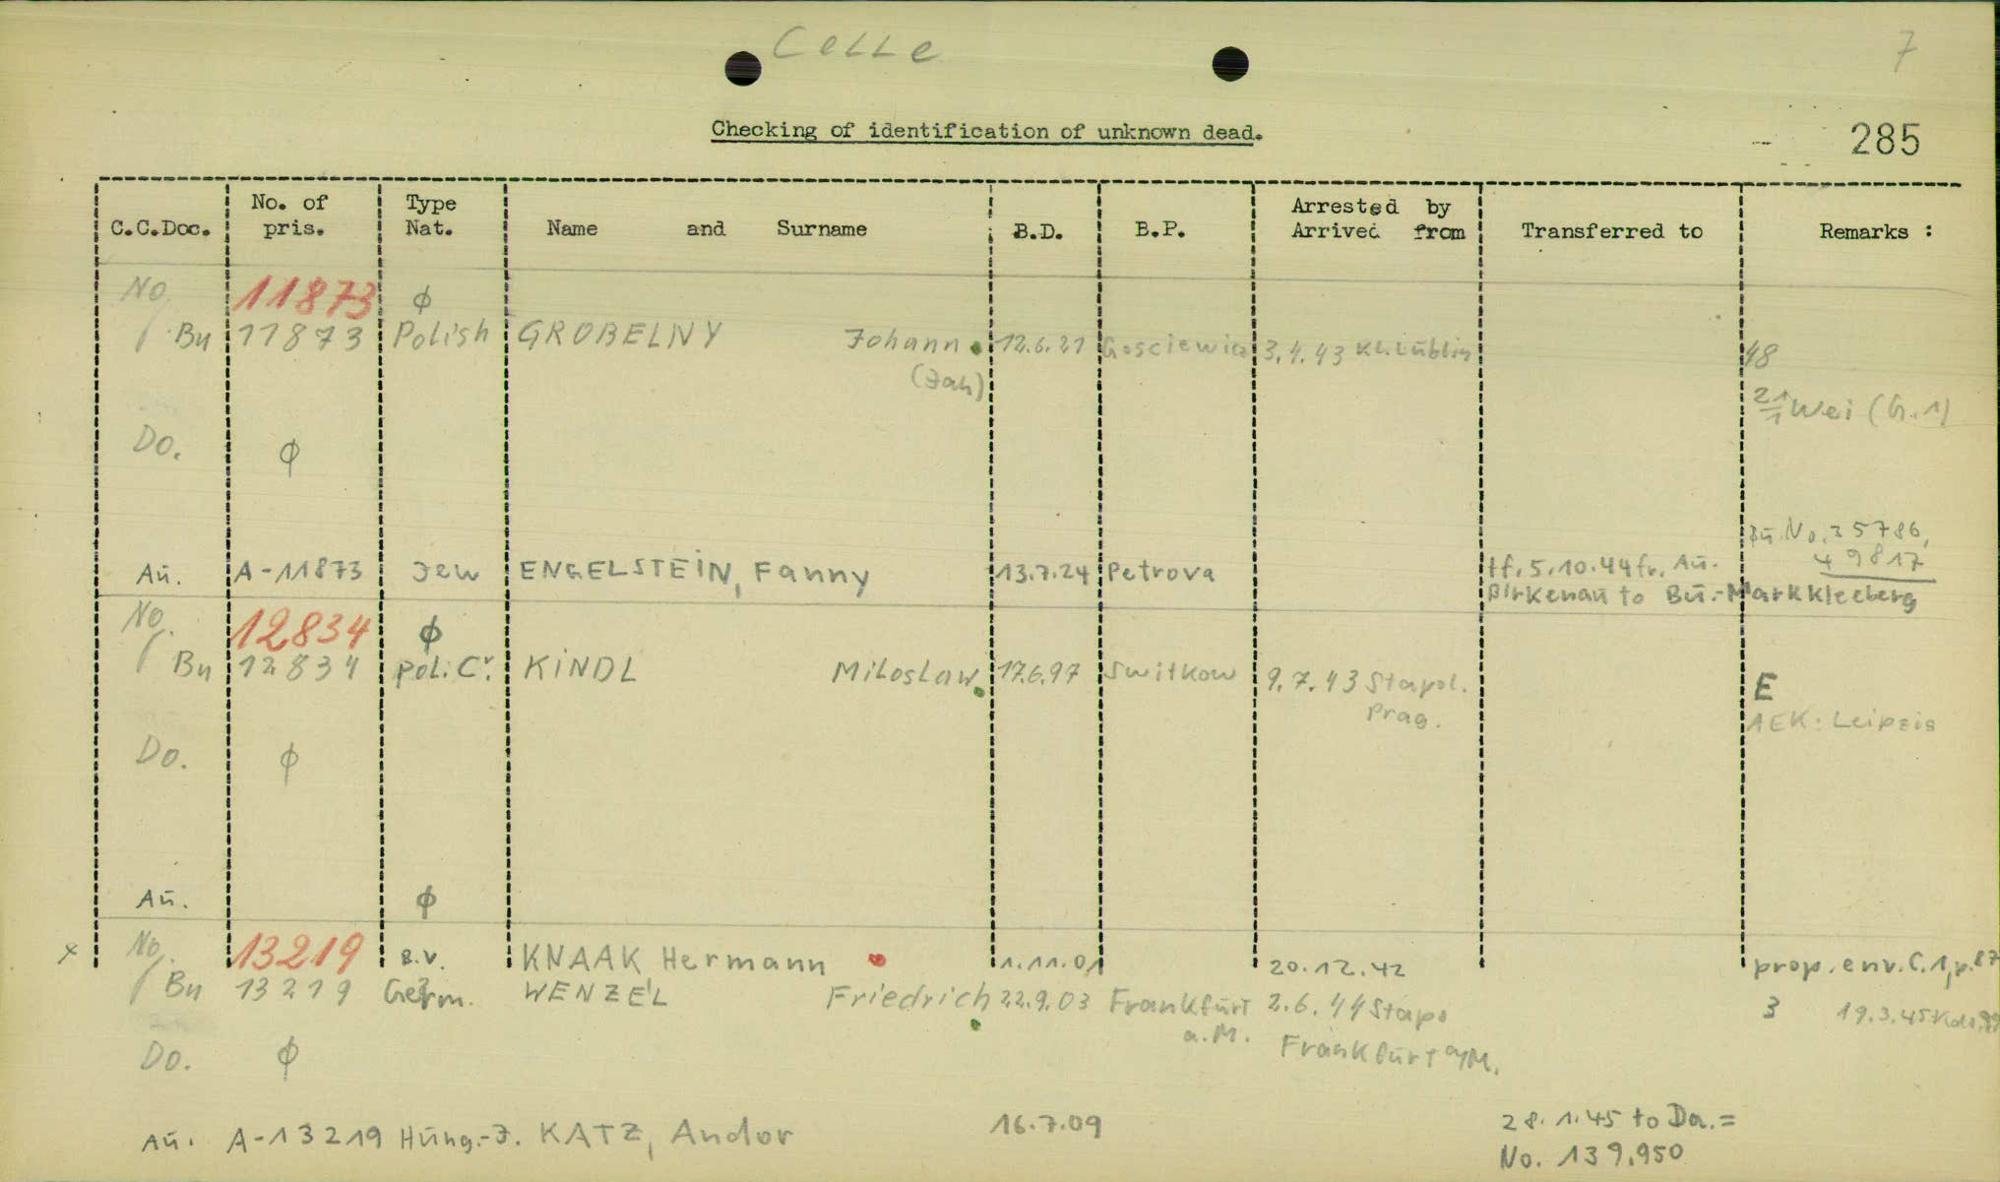 Celle
7
Checking of identification of unknown dead.
285
C.C.Doc.
No. of pris.
Type Nat.
Name and Surname
B.D.
B.P.
Arrested by
Arrived from
Transferred to
Remarks :
No. 11873 ϕ
Bu 11873 Polish GROBELNY Johann 12.6.21 Gosciewicz 3.4.43 Kl. Lublin 48
(Jan)
Wei (G.1)
Do. ϕ
Bū. No. 35786,
49817
Aū. A-11873 Jew ENGELSTEIN, Fanny 13.7.24 Petrova tf. 5.10.44 fr. Aū.-
Birkenau to Bū.-Markkleeberg
No. 12834 ϕ
Bu 12834 Pol. Č. KINDL Miloslaw 17.6.97 Switkow 9.7.43 Stapol. E
Prag. AEK: Leipzig
Do. ϕ
Aū. ϕ
x No. 13219 B.V. KNAAK Hermann 1.11.01 20.12.42 prop. env. C.1, p.87
Bu 13219 Germ. WENZEL Friedrich 22.9.03 Frankfurt 2.6.44 Stapo 3 19.3.45
a.M. Frankfurt a/M.
Do. ϕ
Aū. A-13219 Hung.-J. KATZ, Andor 16.7.09 28.1.45 to Da.=
No. 139.950